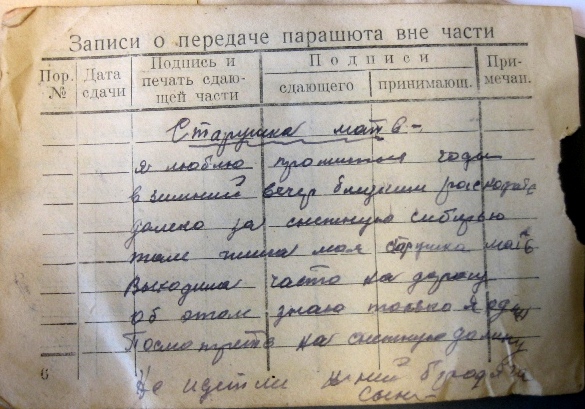 Записи о передаче парашюта вне части
Пор. № Дата сдачи Подпись и печать сдающей части Подписи сдающего принимающ. Примечан.
Старушка мать –
Я люблю прожитые годы
в зимний вечер близким рассказать
далеко за снежную сибирью
там жила моя старушка мать
Выходила часто на дорогу
об этом знаю только я один
Посмотреть на снежную долину
Не идет ли к ней бродяга
сын –
6